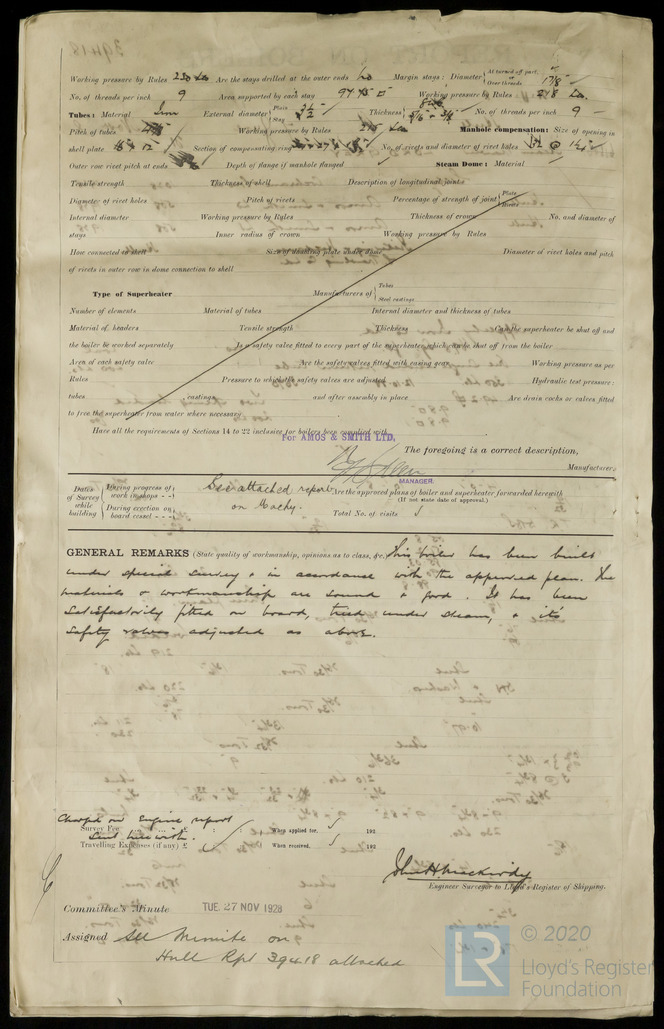 Working pressure by Rules 220 Lbs Are the stays drilled at the outer ends No Margin stays: Diameter { At turned off part, or Over threads 1 7/8"
No. of threads per inch 9 Area supported by each stay Working pressure by Rules 218 Lbs.
Tubes: Material Iron External diameter { Plain Stay Thickness { No. of threads per inch 9
Pitch of tubes Working pressure by Rules 215 Lbs Manhole compensation: Size of opening in
shell plate 16 x 12" Section of compensating ring No. of rivets and diameter of rivet holes
Outer row rivet pitch at ends Depth of flange if manhole flanged Steam Dome: Material
Tensile strength Thickness of shell Description of longitudinal joint
Diameter of rivet holes Pitch of rivets Percentage of strength of joint { Plate Rivets
Internal diameter Working pressure by Rules Thickness of crown No. and diameter of
stays Inner radius of crown Working pressure by Rules
How connected to shell Size of doubling plate under dome Diameter of rivet holes and pitch
of rivets in outer row in dome connection to shell
Type of Superheater Manufacturers of { Tubes Steel castings
Number of elements Material of tubes Internal diameter and thickness of tubes
Material of headers Tensile strength Thickness Can the superheater be shut off and
the boiler be worked separately Is a safety valve fitted to every part of the superheater which can be shut off from the boiler
Area of each safety valve Are the safety valves fitted with easing gear Working pressure as per
Rules Pressure to which the safety valves are adjusted Hydraulic test pressure:
tubes castings and after assembly in place Are drain cocks or valves fitted
to free the superheater from water where necessary
Have all the requirements of Sections 14 to 22 inclusive for boilers been complied with
For AMOS & SMITH LTD.
The foregoing is a correct description,
MANAGER. Manufacturer.
Dates of Survey while building { During progress of work in shops - - During erection on board vessel - - - } See attached report on Machy. Are the approved plans of boiler and superheater forwarded herewith
(If not state date of approval.)
Total No. of visits
GENERAL REMARKS (State quality of workmanship, opinions as to class, &c. This boiler has been built
under special survey & in accordance with the approved plan. The
materials & workmanship are sound & good. It has been
satisfactorily fitted on board, tried under steam, & its
safety valves adjusted as above.
Charged on Engine report
Survey Fee ... ... ... £ When applied for, 192
Sent herewith.
Travelling Expenses (if any) £ When received, 192
Engineer Surveyor to Lloyd's Register of Shipping.
Committee's Minute TUE. 27 NOV 1928
Assigned See Minute on
Hull Rpt 39418 attached
LR © 2020
Lloyd's Register
Foundation